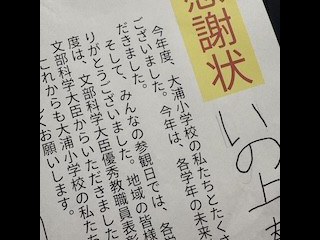 感謝状
いの上
今年度、大浦小学校の私たちとたくさ
ございました。今年は、各学年の未来
だきました。
そして、みんなの参観日では、各学
りがとうございました。地域の皆様
は、文部科学大臣優秀教職員表彰
度は、文部科学大臣からいただきました
これからも大浦小学校の私たち
お願いします。